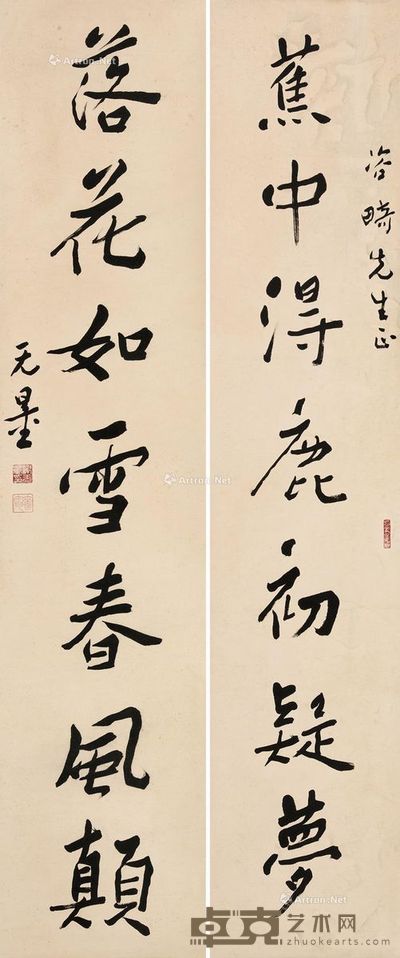 蕉中得鹿初疑夢
落花如雪春風顛
先生正
无量
Artron.Net
Artron.Net
Artron.Net
Artron.Net
卓克艺术网
zhuokearts.com